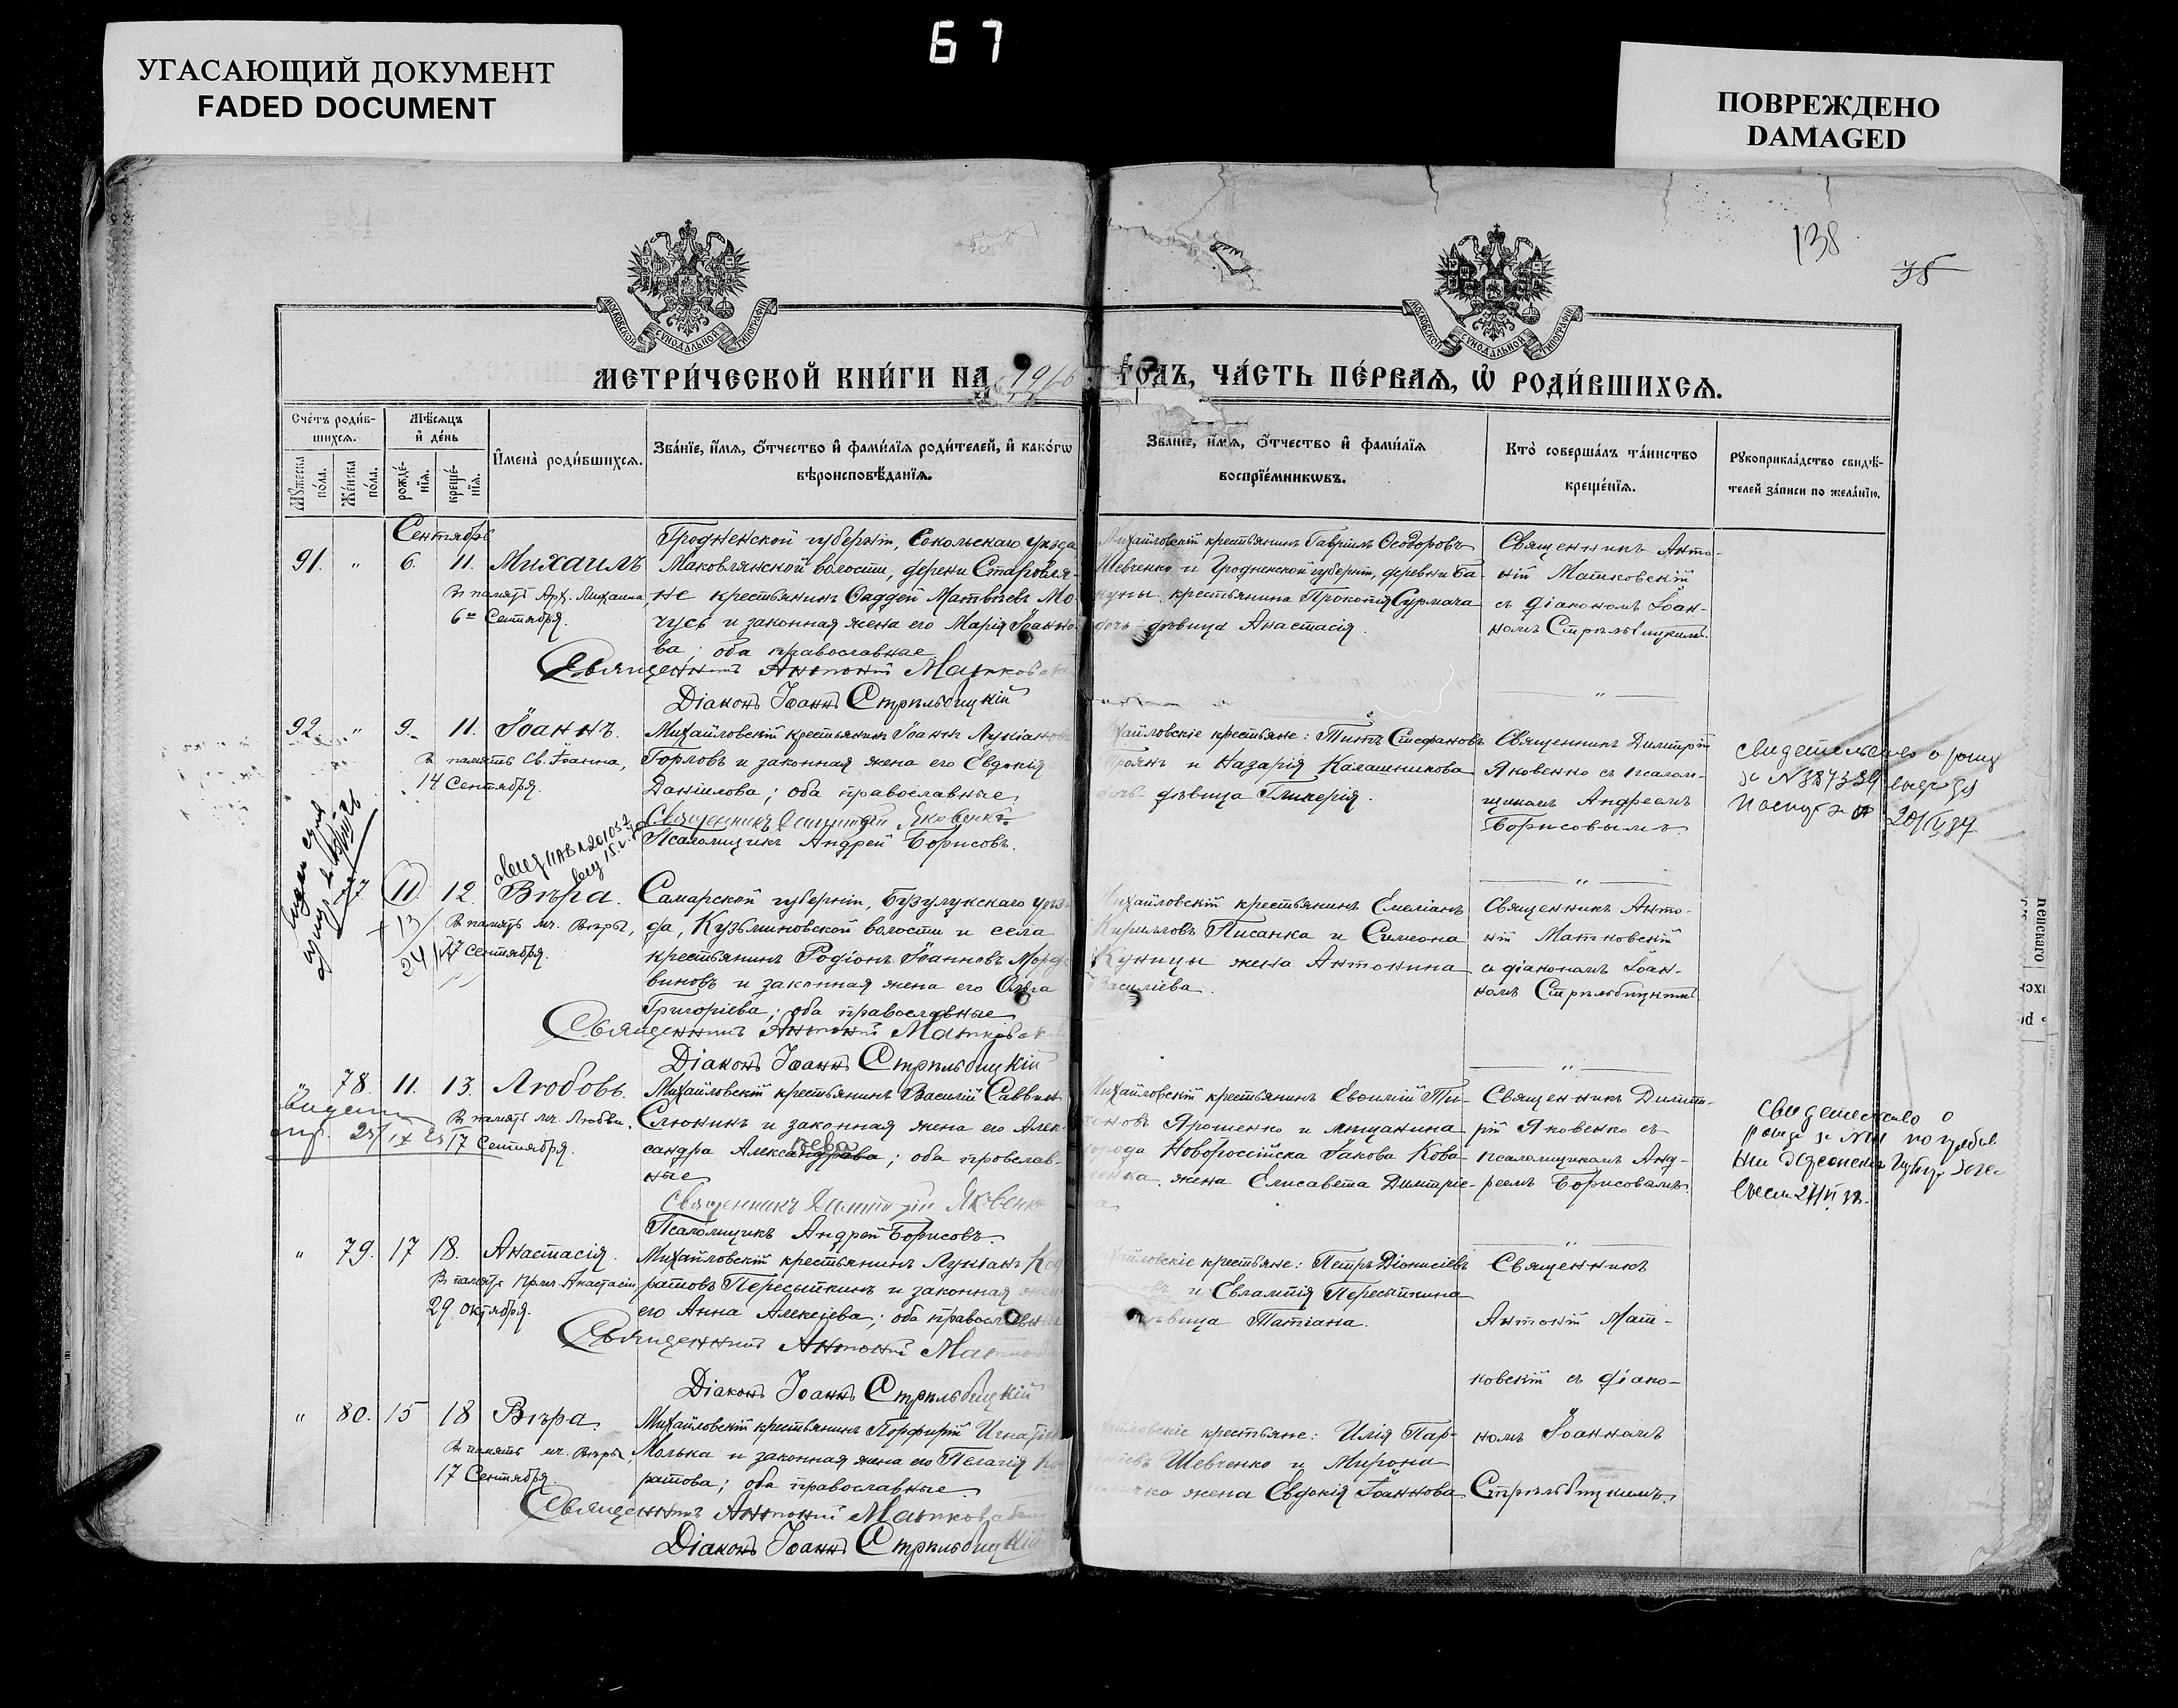 67
УГАСАЮЩИЙ ДОКУМЕНТ
FADED DOCUMENT
ПОВРЕЖДЕНО
DAMAGED
138
38
МОСКОВСКОЙ СѴНОДАЛЬНОЙ ТИПОГРАФІИ
МОСКОВСКОЙ СѴНОДАЛЬНОЙ ТИПОГРАФІИ
МЕТРИ́ЧЕСКОЙ КНИ́ГИ НА 1916 ГОДЪ, ЧА́СТЬ ПЕ́РВАѦ, Ѡ РОДИ́ВШИХСѦ.
Сче́тъ роди́в-
шихсѧ.
Мѣ́сѧцъ
и҆ де́нь
Мꙋ́жеска
по́ла.
Же́нска
по́ла.
рожде́-
нїѧ.
креще́-
нїѧ.
И҆мена̀ роди́вшихсѧ.
Зва́нїе, и҆́мѧ, ѻ҆́тчество и҆ фами́лїѧ роди́телей, и҆ како́гѡ
вѣроисповѣ́данїѧ.
Зва́нїе, и҆́мѧ, ѻ҆́тчество и҆ фами́лїѧ
воспрїе́мникѡвъ.
Кто̀ соверша́лъ та́инство
креще́нїѧ.
Рꙋкоприкла́дство свидѣ́-
телей за́писи по жела́нїю.
Сентябрь
91. " 6. 11. Михаилъ
Въ память Арх. Михаила,
6го Сентября.
Гродненской губерніи, Сокольскаго уѣзда
Маковлянской волости, дерени Старовля-
не крестьянинъ Ѳаддей Матвѣевъ Мо-
чусь и законная жена его Марія Іоанно-
ва; оба православные
Священникъ Антоній Матковск
Діаконъ Іоаннъ Стрѣльбицкій
Михайловскій крестьянинъ Гавріилъ Ѳеодоровъ
Шевченко и Гродненской губерніи, деревни Ба-
куны крестьянина Прокопія Сурмача
дочь дѣвица Анастасія.
Священникъ Анто-
ній Матковскій
съ діакономъ Іоан-
номъ Стрѣльбицкимъ.
92. " 9. 11. Іоаннъ.
Въ память Св. Іоанна,
14 Сентября.
Михайловскій крестьянинъ Іоаннъ Лукіановъ
Горловъ и законная жена его Евдокія
Даніилова; оба православные
Священникъ Димитрій Яковенко
Псаломщикъ Андрей Борисовъ.
Михайловскіе крестьяне: Титъ Стефановъ
Троянъ и Назарія Калашникова
дочь - дѣвица Гликерія.
Священникъ Димитрій
Яковенко съ псалом-
щикомъ Андреемъ
Борисовымъ.
свидетельство о рожд
20/IV 37
77 11. 12. Вѣра.
13
24
Въ память мч. Вѣры,
17 Сентября.
Самарской губерніи, Бузулукскаго уѣз-
да, Кузьминовской волости и села
крестьянинъ Родіонъ Іоанновъ Морд-
виновъ и законная жена его Ольга
Григоріева; оба православные
Священникъ Антоній Матковск
Діаконъ Іоаннъ Стрѣльбицкій
Михайловскій крестьянинъ Емеліанъ
Кирилловъ Писанка и Симеона
Куницы жена Антонина
Василіева.
Священникъ Анто-
ній Матковскій
съ діакономъ Іоан-
номъ Стрѣльбицкимъ.
" 78. 11. 13. Любовь.
Въ память мч. Любви,
17 Сентября.
Михайловскій крестьянинъ Василій Саввинъ
Слюнинъ и законная жена его Алек-
сандра Александрова; оба провслав-
ные
Священникъ Димитрій Яковенко
Псаломщикъ Андрей Борисовъ.
Михайловскій крестьянинъ Евѳимій Ти-
хоновъ Ярошенко и мѣщанина
города Новороссійска Іакова Кова-
ленка жена Елисавета Димитріе-
ва
Священникъ Димит-
рій Яковенко съ
псаломщикомъ Анд-
реемъ Борисовымъ.
свидетельство о
" 79. 17 18. Анастасія.
Въ память Прмч. Анастасіи
29 октября.
Михайловскій крестьянинъ Лукіанъ Код
ратовъ Пересыпкинъ и законная жена
его Анна Алексіева; оба православные
Священникъ Антоній Матковск
Діаконъ Іоаннъ Стрѣльбицкій
Михайловскіе крестьяне: Петръ Діонисіевъ
и Евлампія Пересыпкина
дѣвица Татіана.
Священникъ
Антоній Мат-
ковскій съ діако-
номъ Іоанномъ
Стрѣльбицкимъ.
" 80. 15 18 Вѣра.
Въ память мч. Вѣры,
17 Сентября.
Михайловскій крестьянинъ Порфирій Игнатіев
Молька и законная жена его Пелагія Код
ратова; оба православные.
Священникъ Антоній Матковск
Діаконъ Іоаннъ Стрѣльбицкій
Михайловскіе крестьяне: Илія Пар-
Шевченко и Мирона
жена Евдокія Іоаннова.